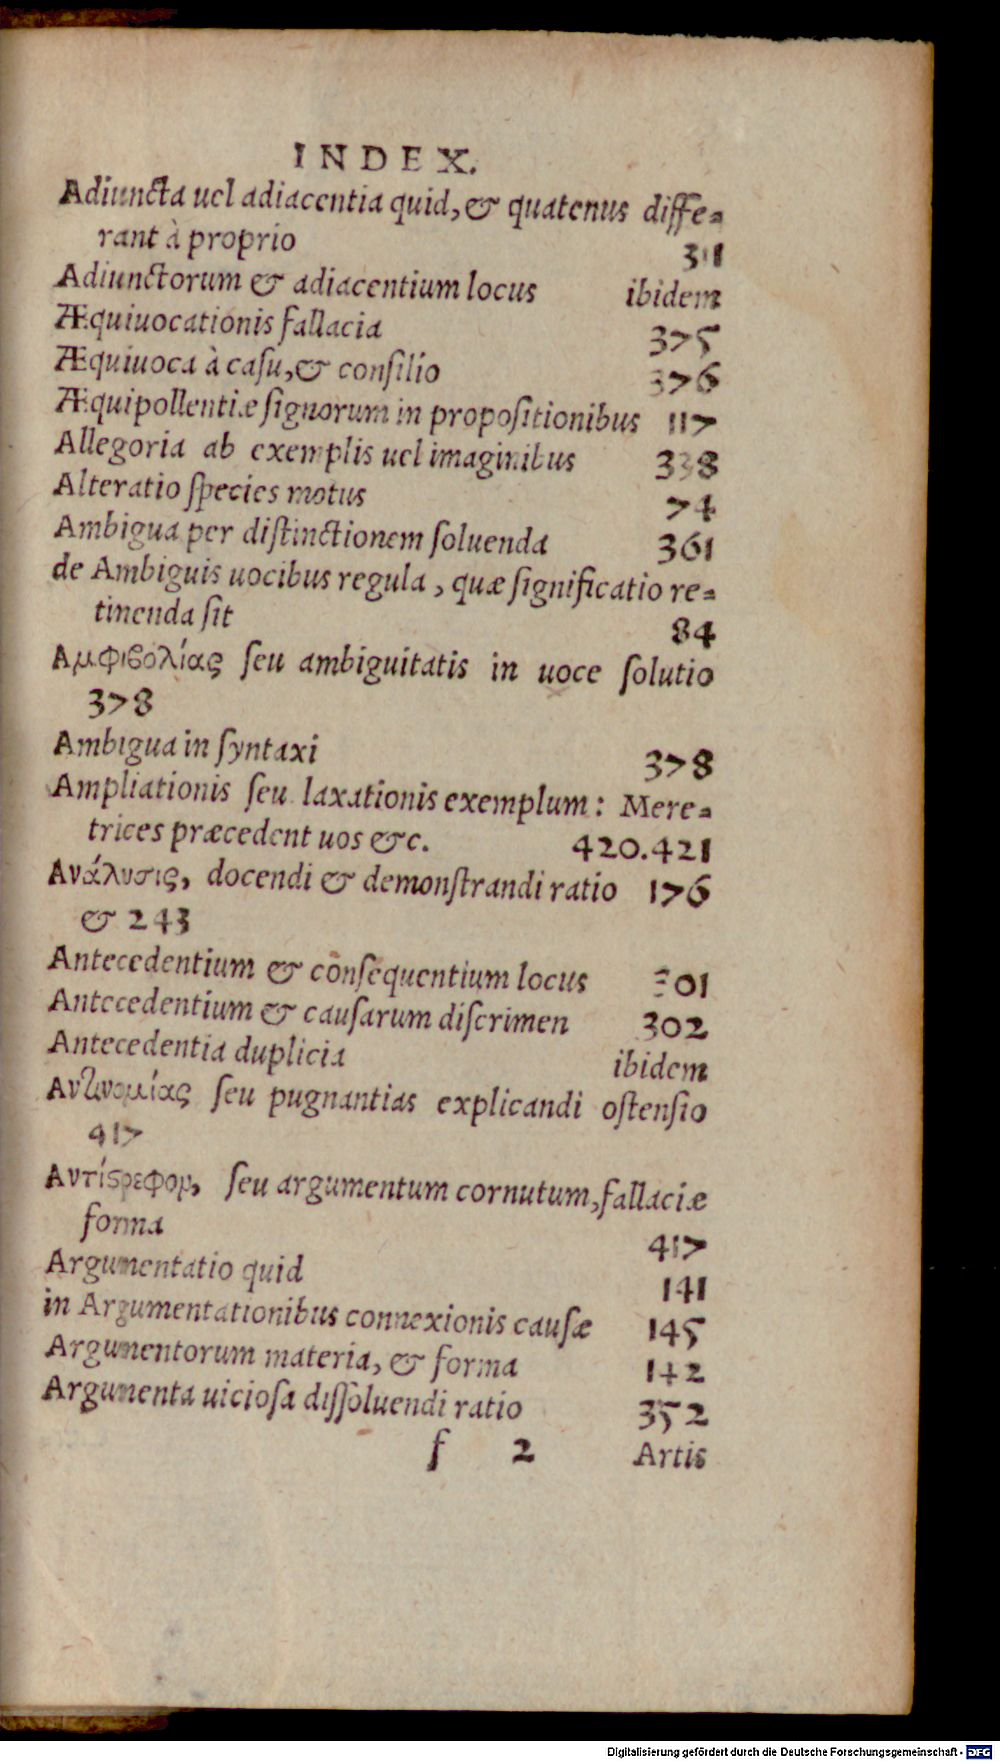 INDEX.
Adiuncta uel adiacentia quid, & quatenus diffe-
rant à proprio 311
Adiunctorum & adiacentium locus ibidem
Æquiuocationis fallacia 375
Æquiuoca à casu, & consilio 376
Æquipollentiæ signorum in propositionibus 117
Allegoria ab exemplis uel imaginibus 338
Alteratio species motus 74
Ambigua per distinctionem soluenda 361
de Ambiguis uocibus regula, quæ significatio re-
tinenda sit 84
Αμφιβολίας seu ambiguitatis in uoce solutio
378
Ambigua in syntaxi 378
Ampliationis seu laxationis exemplum: Mere-
trices præcedent uos &c. 420.421
Ανάλυσις, docendi & demonstrandi ratio 176
& 243
Antecedentium & consequentium locus 301
Antecedentium & causarum discrimen 302
Antecedentia duplicia ibidem
Αντινομίας seu pugnantias explicandi ostensio
417
Αντίςρεφον, seu argumentum cornutum, fallaciæ
forma 417
Argumentatio quid 141
in Argumentationibus connexionis causæ 145
Argumentorum materia, & forma 142
Argumenta uiciosa dissoluendi ratio 352
f 2 Artis
Digitalisierung gefördert durch die Deutsche Forschungsgemeinschaft - DFG